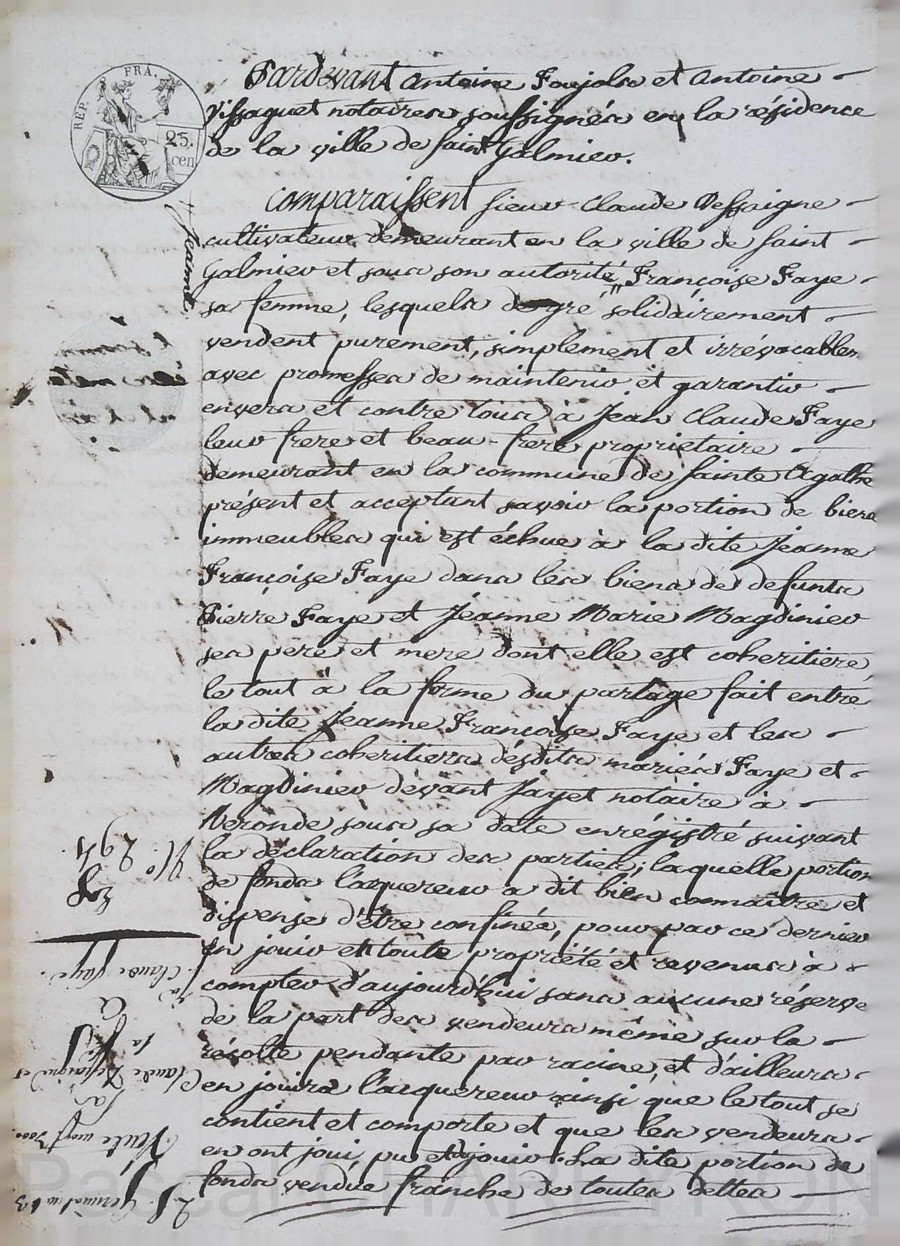 REP. FRA.
25.
cen
Pardevant Antoine Foujols et Antoine
Vissaguet notaires soussignés en la résidence
de la ville de saint Galmier.
Comparaissent sieur Claude Dessaigne
cultivateur demeurant en la ville de saint
Galmier et sous son autorité "Françoise Faye
"Jeanne
sa femme, lesquels de gré solidairement
vendent purement, simplement et irrévocablem
avec promesses de maintenir et garantir
envers et contre tous à Jean Claude Faye
leur frere et beau-frere proprietaire
demeurant en la commune de Sainte Agathe
présent et acceptant savoir la portion de biens
immeubles qui est échue à la dite Jeanne
Françoise Faye dans les biens de defunts
Pierre Faye et Jeanne Marie Magdinier
ses pere et mere dont elle est coheritiere,
le tout à la forme du partage fait entre
la dite Jeanne Françoise Faye et les
autres coheritiers desdits mariés Faye et
Magdinier devant Jayet notaire à
Neronde sous sa date enrégistré suivant
la déclaration des parties; laquelle portion
de fonds l'acquereur a dit bien connaître et
dispense d'être confinée, pour par ce dernier
en jouir en toute propriété et revenus à
compter d'aujourd'hui sans aucune réserve
de la part des vendeurs même sur la
récolte pendante par racine, et d'ailleurs
en jouira l'acquereur ainsi que le tout se
contient et comporte et que les vendeurs
en ont joui, pu et dû jouir. La dite portion de
fonds vendue franche de toutes dettes
N° 294
Vente
à
Claude Faye
Pascal CHAREYRON